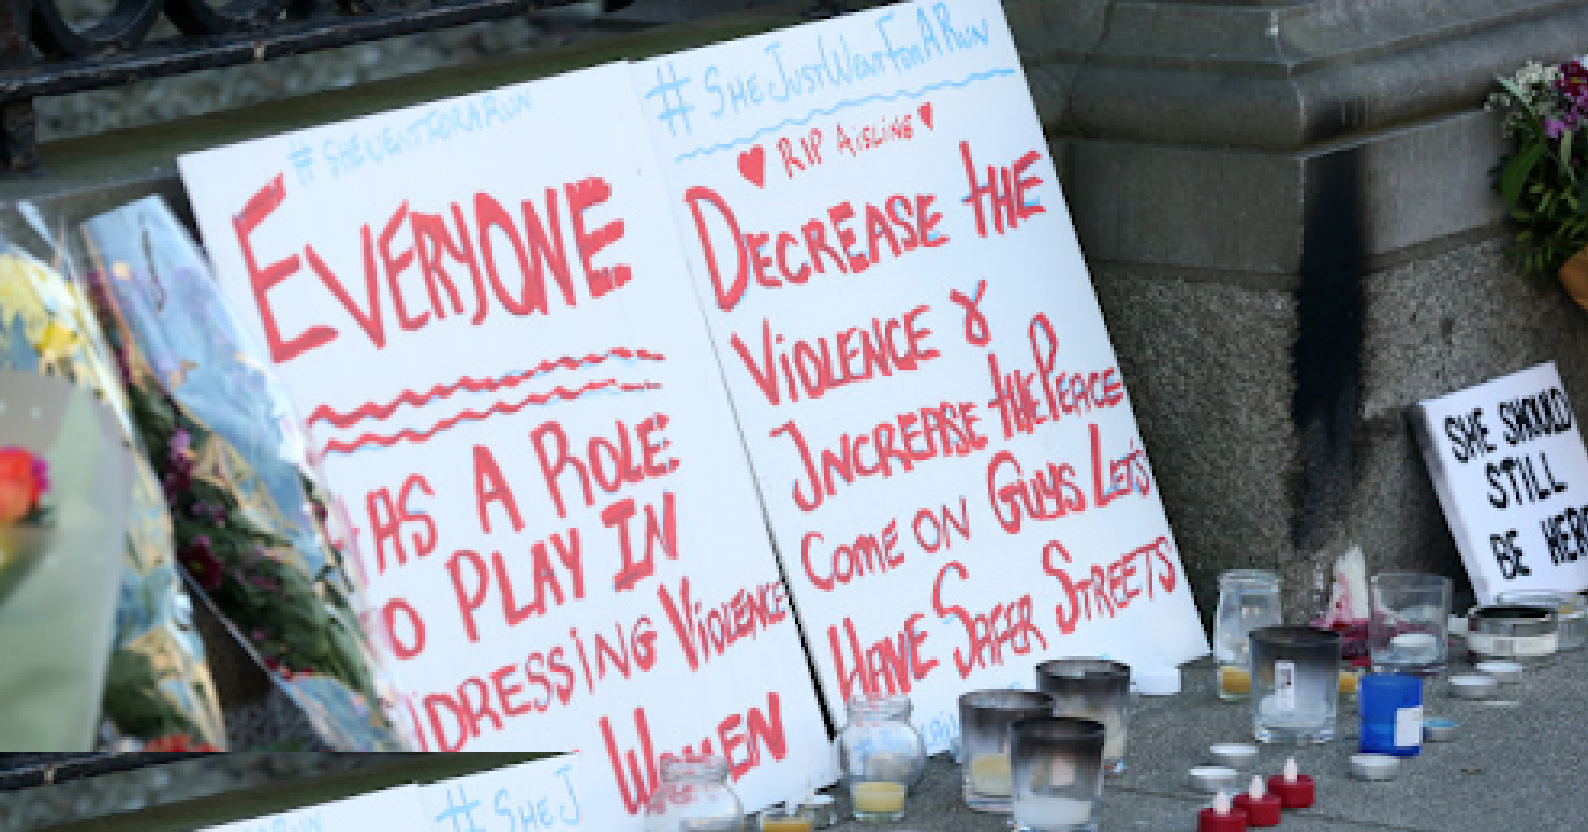 #SHEWENTFORARUN
EVERYONE
HAS A ROLE
TO PLAY IN
ADDRESSING VIOLENCE
WOMEN
#SHEJUSTWENTFORARUN
RIP AiSLiNG
DECREASE THE
ViOLENCE &
INCREASE THE PEACE
COME ON GUYS LET'S
HAVE SAFER STREETS
SHE SHOULD
STILL
BE HERE
ARUN
#SHEJ